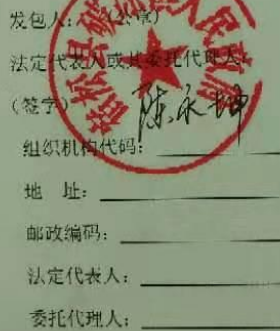 发包人：（公章）
法定代表人或其委托代理人：
（签字）陈永坤
组织机构代码：
地 址：
邮政编码：
法定代表人：
委托代理人：